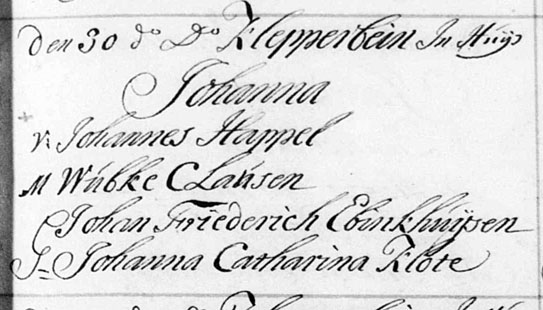 Den 30 do Do Klepperbein In Huijs
Johanna
V: Johannes Happel
M Wübke Claúsen
Johan Friederich Ebinkhuijsen
G= Johanna Catharina Klote